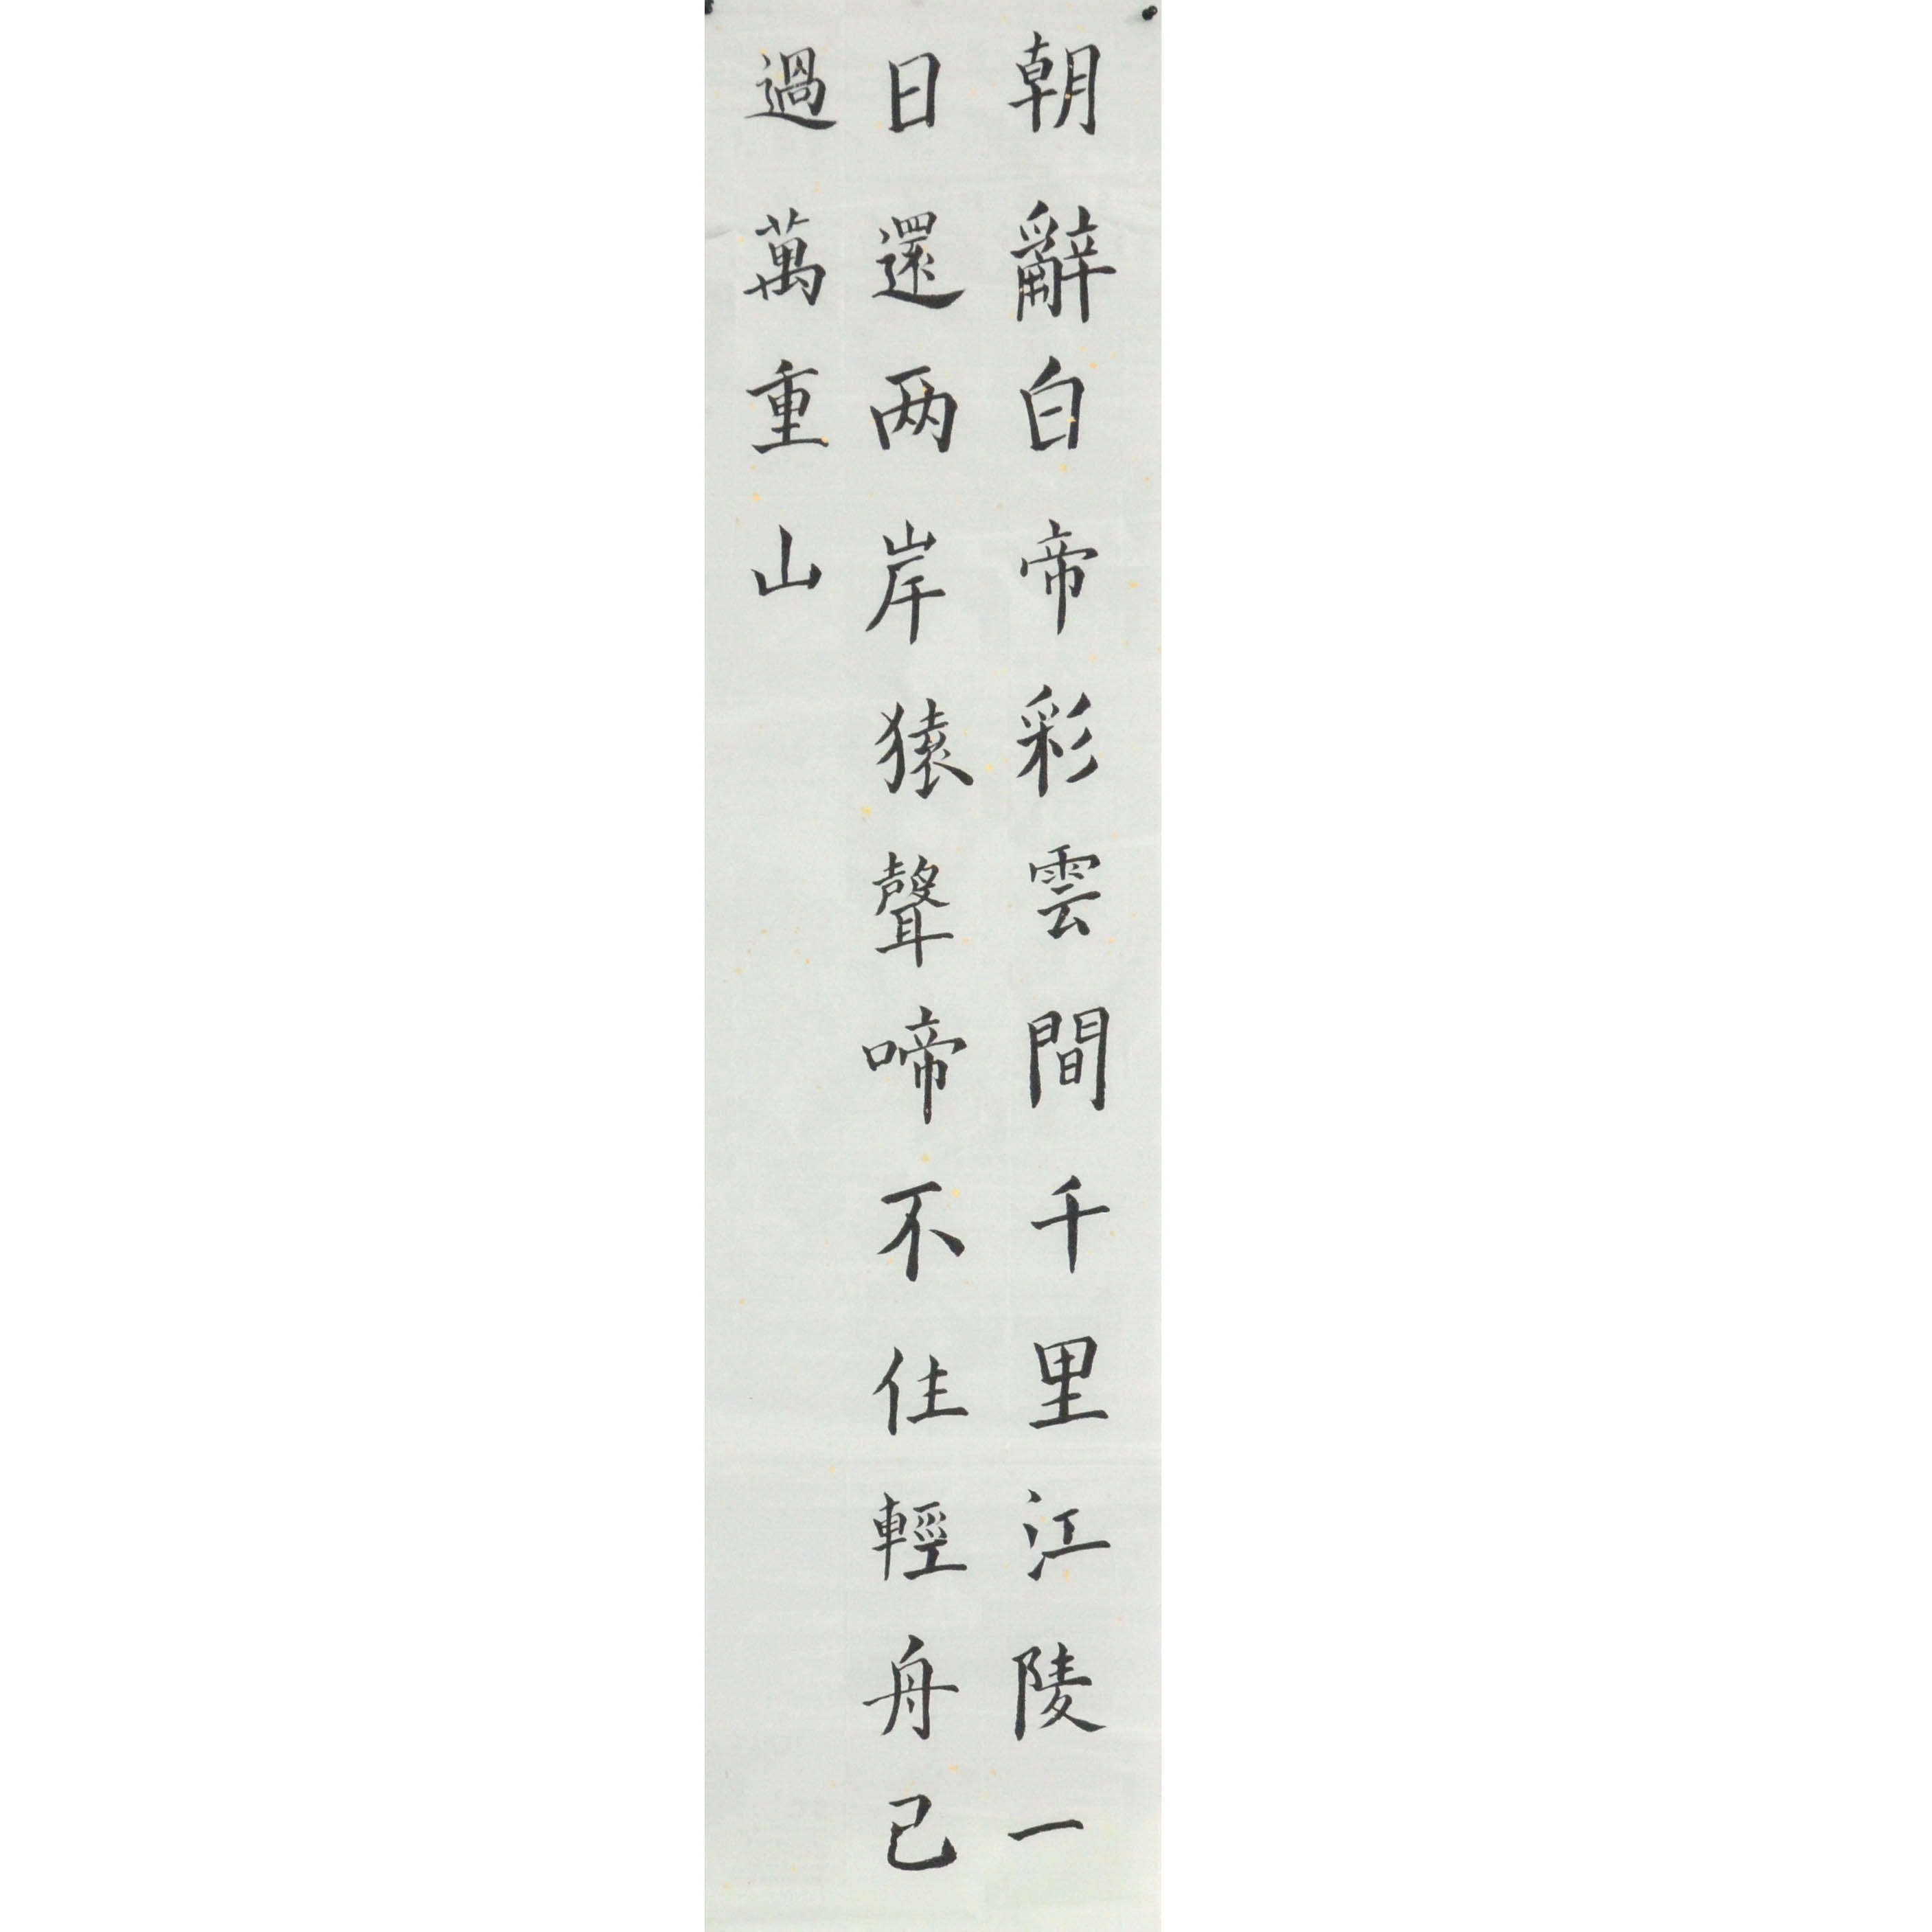 朝辭白帝彩雲間千里江陵一
日還两岸猿聲啼不住輕舟已
過萬重山